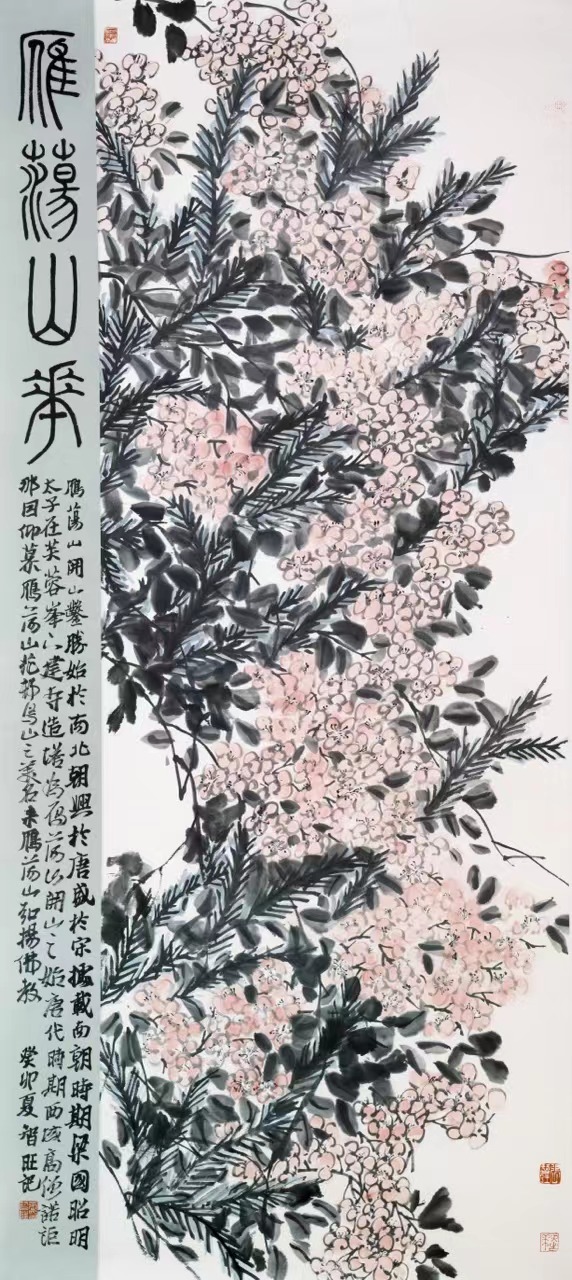 雁蕩山花
鴈蕩山開山鑿勝始於南北朝興於唐盛於宋據載南朝時期梁國昭明
太子在芙蓉峯下建寺造塔為鴈蕩山開山之始唐代時期西域高僧諾詎
那因仰慕鴈蕩山花邨鳥山之美名来鴈蕩山弘揚佛教
癸卯夏智旺记